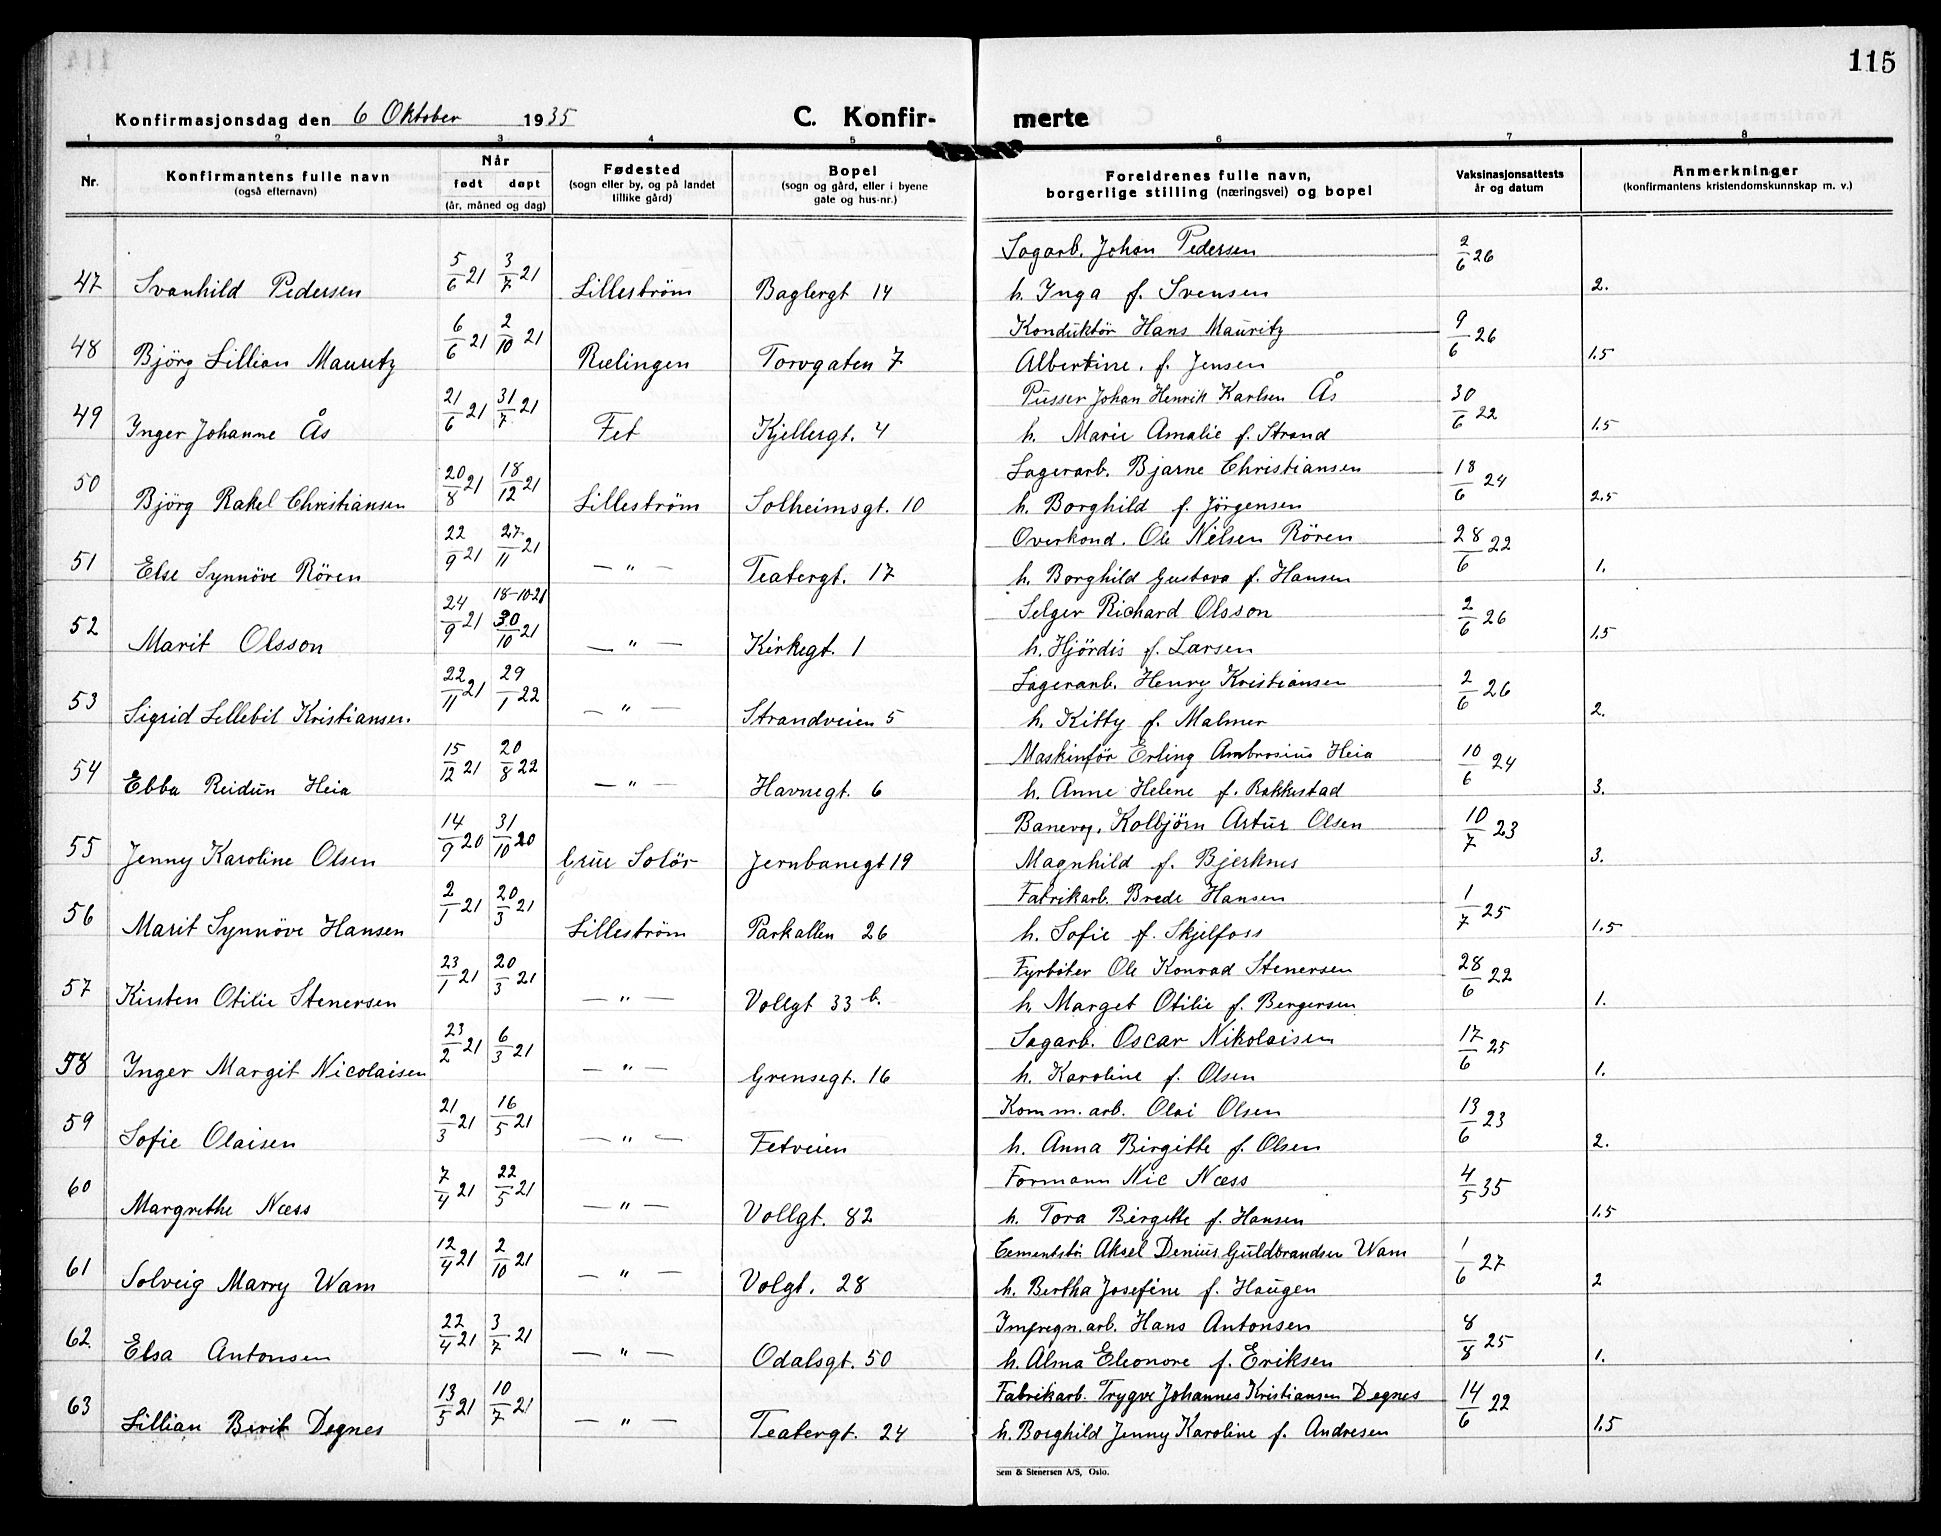 115
Konfirmasjonsdag den 6 Oktober 1935 C. Konfir- merte
1 2 3 4 5 6 7 8
Nr. Konfirmantens fulle navn (også efternavn) Når født døpt (år, måned og dag) Fødested (sogn eller by, og på landet tillike gård) Bopel (sogn og gård, eller i byene gate og hus-nr.) Foreldrenes fulle navn, borgerlige stilling (næringsvei) og bopel Vaksinasjonsattests år og datum Anmerkninger (konfirmantens kristendomskunnskap m. v.)
47 Svanhild Pedersen 5/6 21 3/7 21 Lilleström Baglergt 14 Sagarb. Johan Pedersen 2/6 26
h. Inga f. Svensen 2.
48 Björg Lillian Mauritz 6/6 21 2/10 21 Rælingen Torvgaten 7 Konduktör Hans Mauritz 9/6 26
Albertine. f. Jensen 1.5
49 Inger Johanne Ås 21/6 21 31/7 21 Fet Kjellergt. 4 Pusser Johan Henrik Karlsen Ås 30/6 22
h. Marie Amalie f. Strand 1.5
50 Björg Rakel Christiansen 20/8 21 18/12 21 Lilleström Solheimsgt. 10 Lagerarb. Bjarne Christiansen 18/6 24
h. Borghild f. Jörgensen 2.5
51 Else Synnöve Rören 22/9 21 27/11 21 — " — Teatergt. 17 Overkond. Ole Nilsen Rören 28/6 22
h. Borghild Gustava f. Hansen 1.
52 Marit Olsson 24/9 21 18-10-21 30/10 21 — " — Kirkegt. 1 Selger Richard Olsson 2/6 26
h. Hjördis f. Larsen 1.5
53 Sigrid Lillebil Kristiansen. 22/11 21 29/1 22 — " — Strandveien 5 Lagerarb. Henry Kristiansen 2/6 26
h. Kitty f. Malmer 2.
54 Ebba Reidun Heia 15/12 21 20/8 22 — " — Havnegt. 6 Maskinför Erling Ambrosius Heia 10/6 24
h. Anne Helene f. Rakkestad 3.
55 Jenny Karoline Olsen 14/9 20 31/10 20 Grue Solör Jernbanegt 19 Banevog. Kolbjörn Artur Olsen 10/7 23
Magnhild f. Bjerknes 3.
56 Marit Synnöve Hansen 2/1 21 20/3 21 Lilleström Parkallen 26 Fabrikarb. Brede Hansen 1/7 25
h. Sofie f. Skjelfoss 1.5
57 Kirsten Otilie Stenersen 23/1 21 20/3 21 — " — Vollgt 33 b. Fyrböter Ole Konrad Stenersen 28/6 22
h. Marget Otilie f. Bergersen 1.
58 Inger Margit Nicolaisen 23/2 21 6/3 21 — " — Grensegt. 16 Sagarb. Oscar Nikolaisen 17/6 25
h. Karoline f. Olsen 1.
59 Sofie Olaisen 21/3 21 16/5 21 — " — Fetveien Komm. arb. Olai Olsen 13/6 23
h. Anna Birgitte f. Olsen 2.
60 Margrethe Næss 7/4 21 22/5 21 — " — Vollgt. 82 Formann Nic Næss 4/5 35
h. Tora Birgitte f. Hansen 1.5
61 Solveig Marry Wam 12/4 21 2/10 21 — " — Volgt. 28 Cementstö. Aksel Denius Guldbrandsen Wam 1/6 27
h. Bertha Josefine f. Haugen 2
62. Elsa Antonsen 22/4 21 3/7 21 — " — Odalsgt. 50 Impregn. arb. Hans Antonsen 8/8 25
h. Alma Eleonore f. Eriksen 1.
63 Lillian Berit Degnes 13/5 21 10/7 21 — " — Teatergt. 24 Fabrikarb. Trygve Johannes Kristiansen Degnes 14/6 22
h. Borghild Jenny Karoline f. Andresen 1.5
Sem & Stenersen A/S, Oslo.